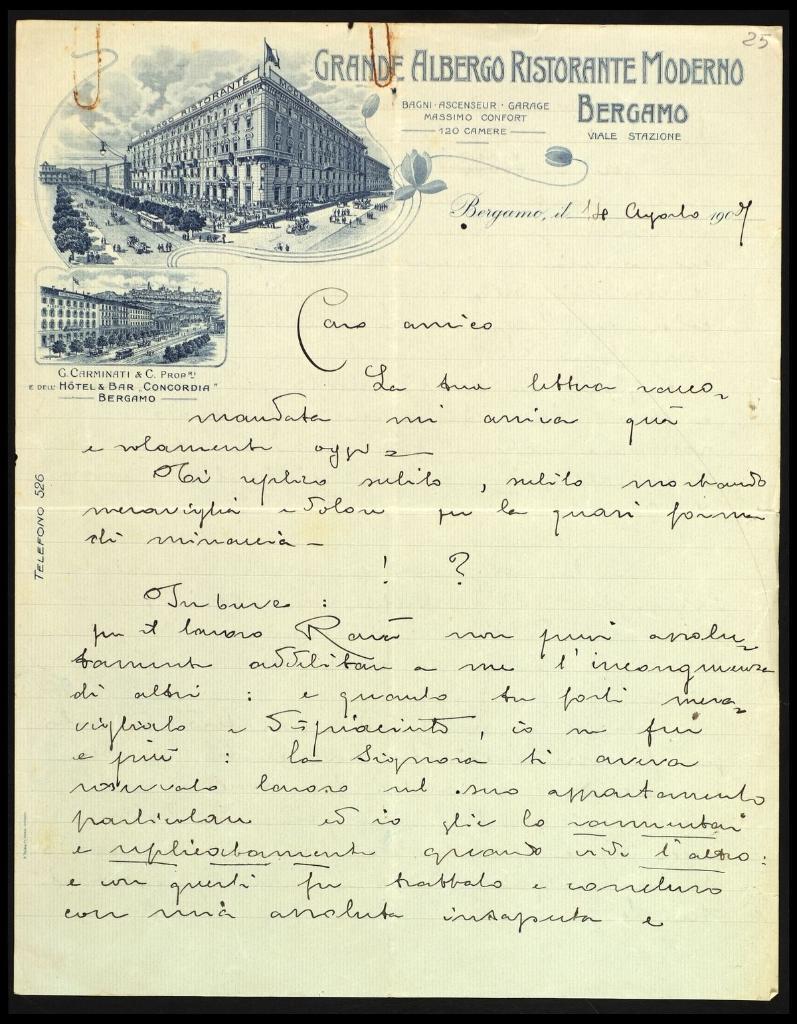 25
GRANDE ALBERGO RISTORANTE MODERNO
BERGAMO
VIALE STAZIONE
BAGNI · ASCENSEUR · GARAGE
MASSIMO CONFORT
120 CAMERE
ALBERGO RISTORANTE MODERNO
Bergamo, il 18 Agosto 1907
G. CARMINATI & C. PROPRI
E DELL' HÔTEL & BAR „CONCORDIA"
BERGAMO
TELEFONO 526
Caro amico
La tua lettera racco=
mandata mi arriva quà
e solamente oggi =
Ti replico subito, subito mostrando
meraviglia e dolore per la quasi forma
di minaccia —
! ?
In breve :
per il lavoro Ravà non puoi assolu=
tamente addebitare a me l'incongruenza
di altri : e quanto tu fosti mera=
vigliato e dispiaciuto, io ne fui
e più : la Signora ti aveva
riservato lavoro nel suo appartamento
particolare ed io glie lo rammentai
e replicatamente quando vidi l'altro :
e con questi fu trattato e concluso
con mia assoluta insaputa e